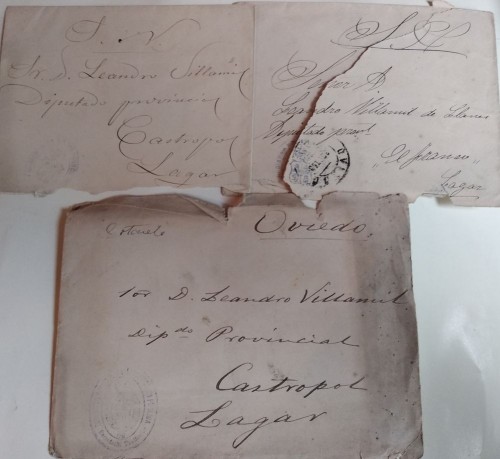 S. N.
Sr. D. Leandro Villamil
Diputado provincial
Castropol
Lagar
S. N.
Señor D.
Leandro Villamil de Llanos
Diputado provl.
El Franco
Lagar
Oviedo,
Sor D. Leandro Villamil
Dipdo Provincial
Castropol
Lagar